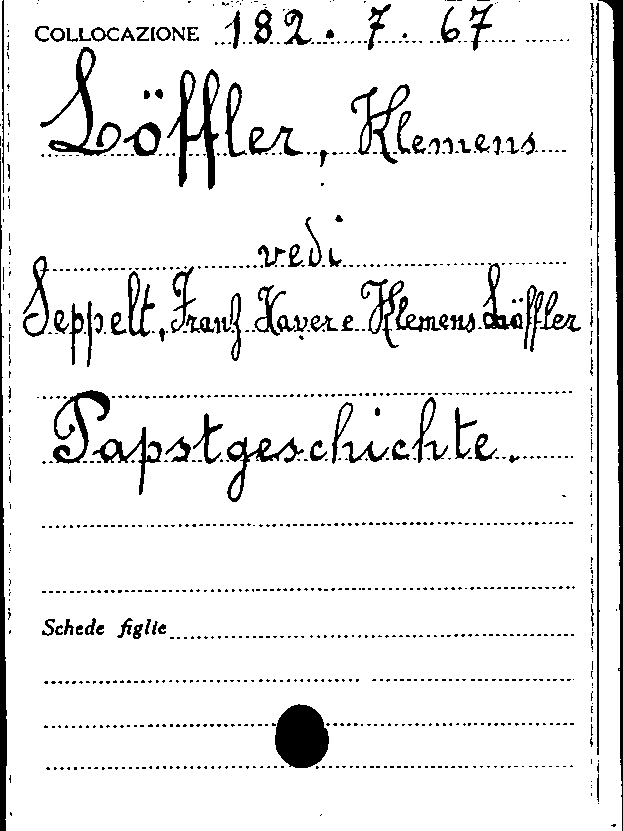 COLLOCAZIONE 182.7.67
Löffler, Klemens
vedi
Seppelt, Franz Xaver e Klemens Löffler
Papstgeschichte.
Schede figlie